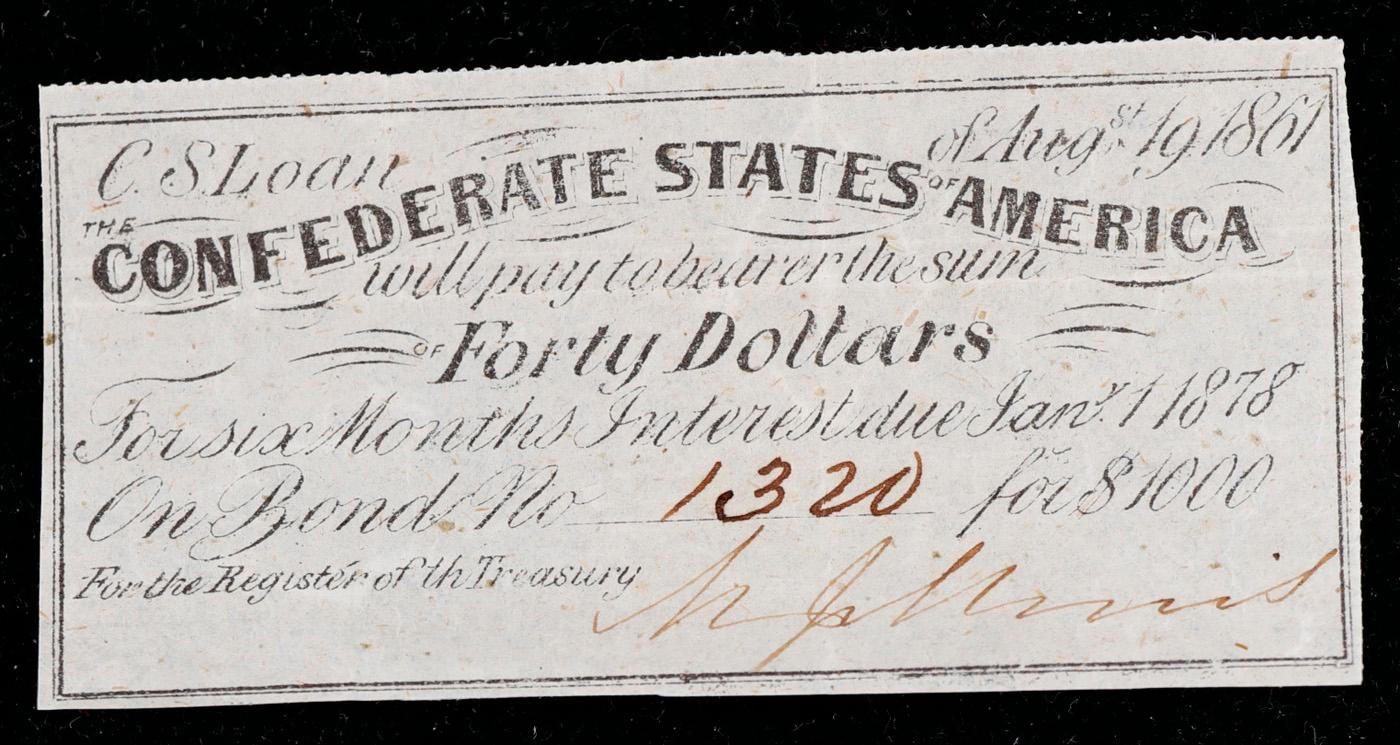 C. S. Loan of Augst 19, 1861
THE CONFEDERATE STATES OF AMERICA
will pay to bearer the sum
OF Forty Dollars
For six Months Interest due Jany. 1 1878
On Bond No 1320 for $1000
For the Register of th Treasury